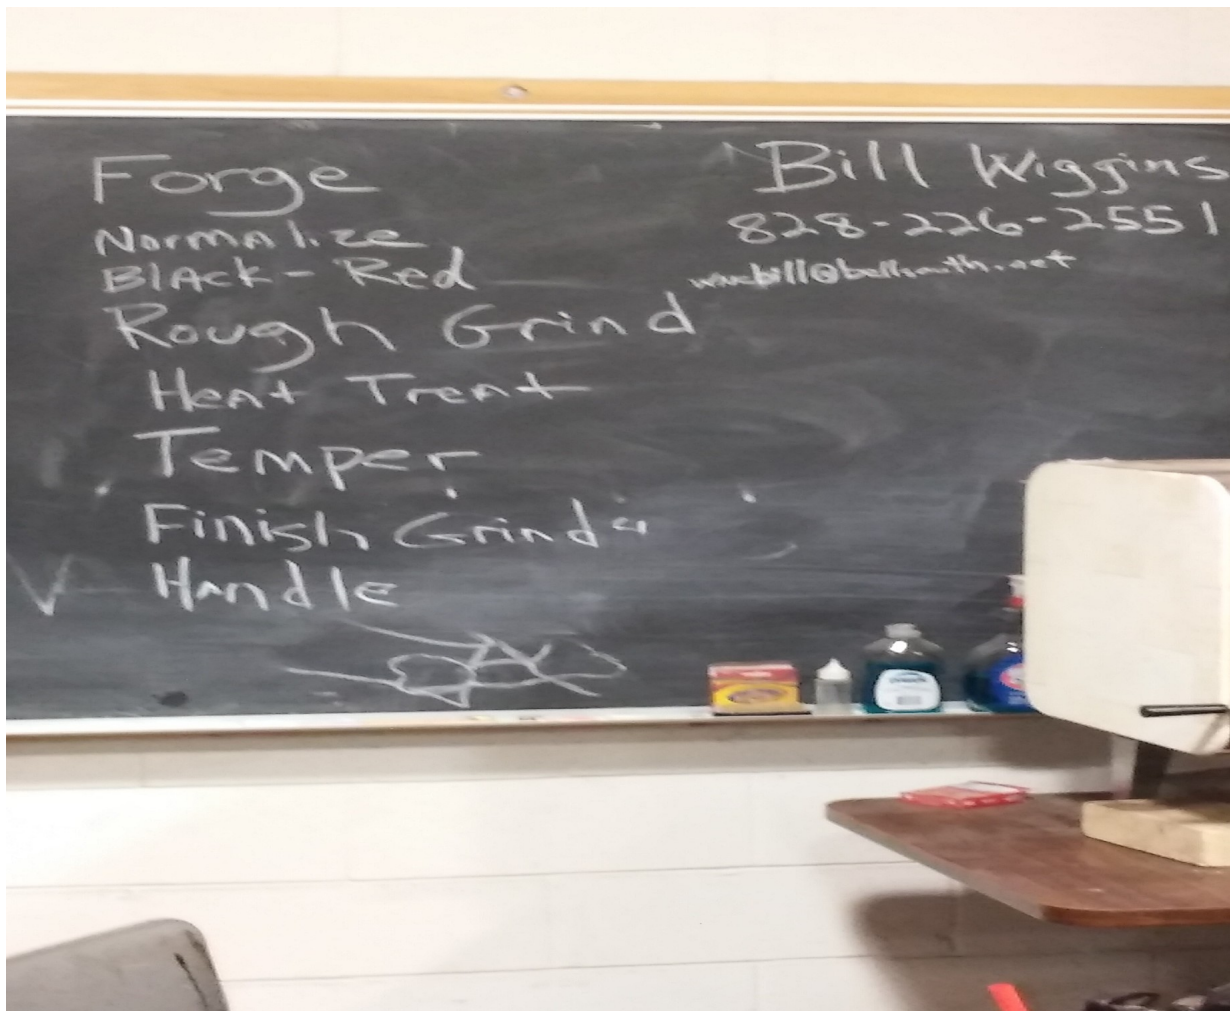 Forge
Normalize
Black - Red
Rough Grind
Heat Treat
Temper
Finish Grind
Handle
Bill Wiggins
828-226-2551